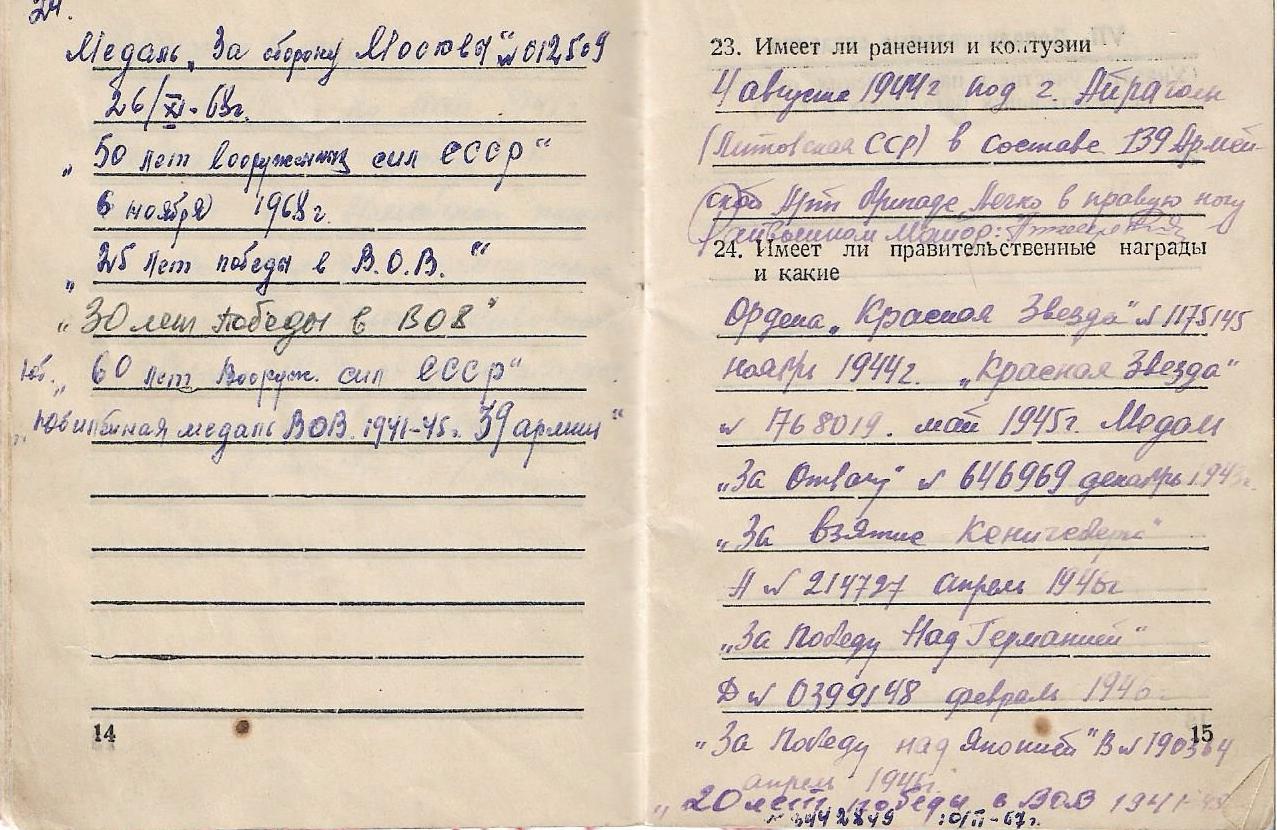 24.
Медаль „За оборону Москвы" № 012509
26/XI-63г.
„50 лет вооруженных сил СССР"
6 ноября 1968г.
„25 лет победы в В.О.В."
„30 лет победы в ВОВ"
Юб. „60 лет Вооруж. сил СССР"
„Юбилейная медаль ВОВ. 1941-45г. 39 армии"
14
23. Имеет ли ранения и контузии
4 августа 1944г под г.
(Литовская ССР) в составе 139 Армей-
ской Арт Бригаде легко в правую ногу
майор:
24. Имеет ли правительственные награды
и какие
Ордена „Красная Звезда" № 1175145
ноябрь 1944г. „Красная Звезда"
№ 768019. май 1945г. Медали
„За Отвагу" № 646969 декабрь 1943г.
„За взятие Кенигсберга"
А № 214727 апрель 1946г
„За Победу Над Германией"
Д № 0399148 февраль 1946
„За Победу над Японией" В № 190364
15
апрель 1946г.
„20 лет победы в ВОВ 1941-45
№ 3442849